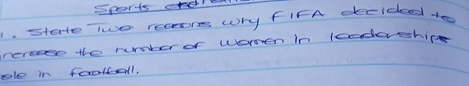 Sports
1. State Two reasons why FIFA decided to
increase the number of women in leaderships
ole in football.